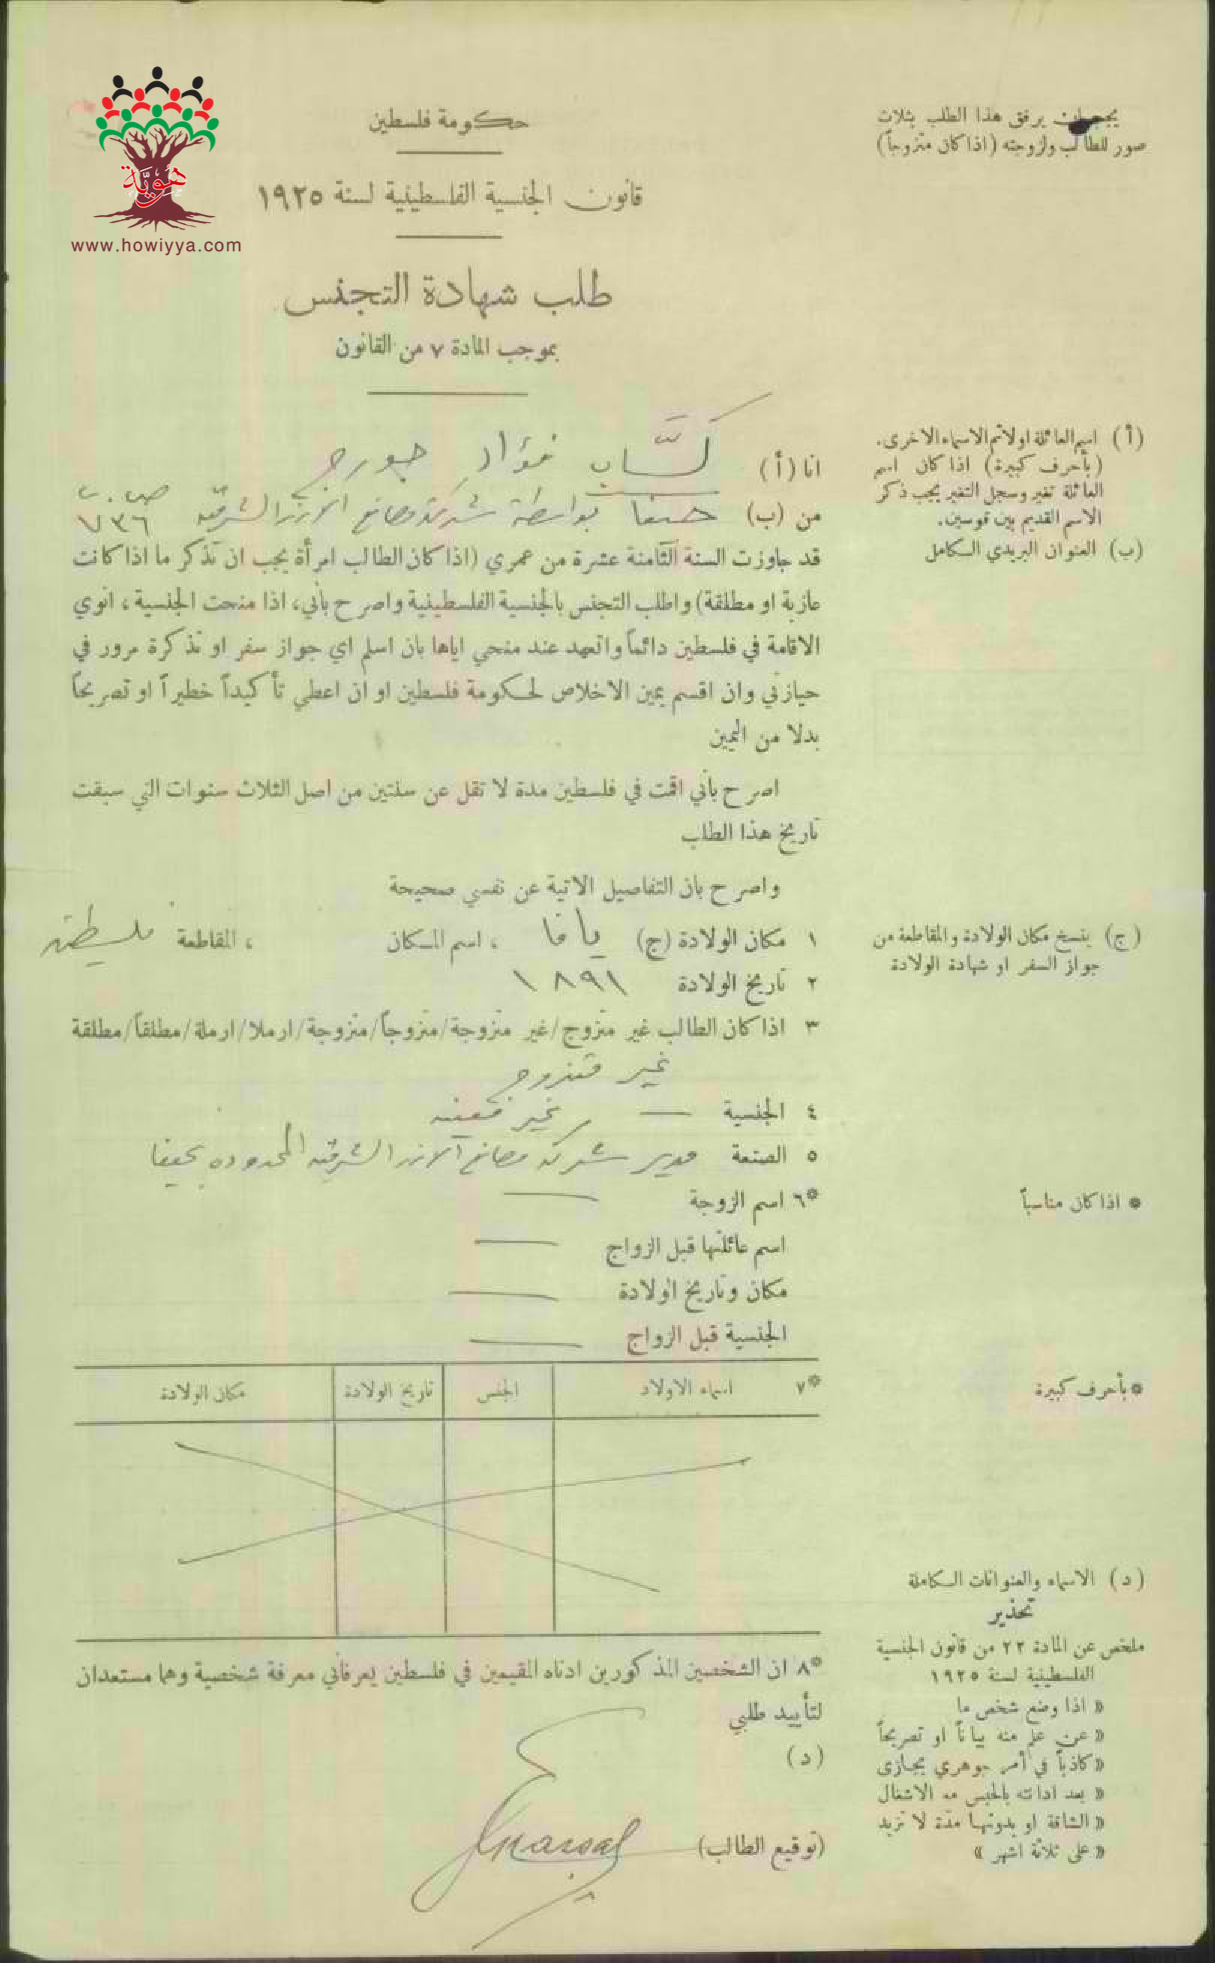 هويّة
www.howiyya.com
حكومة فلسطين
قانون الجنسية الفلسطينية لسنة ١٩٢٥
طلب شهادة التجنس
بموجب المادة ٧ من القانون
يجب ان يرفق هذا الطلب بثلاث
صور للطالب ولزوجته (اذا كان متزوجاً)
انا (أ) كسّاب فؤاد جورج
من (ب) حيفا بواسطة شركة مصانع الشرقية ص.ب. ٧٣٦
قد جاوزت السنة الثامنة عشرة من عمري (اذا كان الطالب امرأة يجب ان تذكر ما اذا كانت
عازبة او مطلقة) واطلب التجنس بالجنسية الفلسطينية واصرح بأني، اذا منحت الجنسية، انوي
الاقامة في فلسطين دائماً واتعهد عند منحي اياها بان اسلم اي جواز سفر او تذكرة مرور في
حيازتي وان اقسم يمين الاخلاص لحكومة فلسطين او ان اعطي تأكيداً خطيراً او تصريحاً
بدلا من اليمين
اصرح بأني اقمت في فلسطين مدة لا تقل عن سنتين من اصل الثلاث سنوات التي سبقت
تاريخ هذا الطلب
واصرح بان التفاصيل الاتية عن نفسي صحيحة
١ مكان الولادة (ج) يافا ، اسم المكان ، المقاطعة فلسطين
٢ تاريخ الولادة ١٨٩١
٣ اذا كان الطالب غير متزوج/غير متزوجة/متزوجاً/متزوجة/ارملا/ارملة/مطلقاً/مطلقة
غير متزوج
٤ الجنسية — غير معينه
٥ الصنعة مدير شركة مصانع الشرقيه المحدوده بحيفا
*٦ اسم الزوجة —
اسم عائلتها قبل الزواج —
مكان وتاريخ الولادة —
الجنسية قبل الزواج —
*٧ اسماء الاولاد الجنس تاريخ الولادة مكان الولادة
*٨ ان الشخصين المذكورين ادناه المقيمين في فلسطين يعرفاني معرفة شخصية وهما مستعدان
لتأييد طلبي
(د)
(توقيع الطالب)
(أ) اسم العائلة اولا ثم الاسماء الاخرى.
(بأحرف كبيرة) اذا كان اسم
العائلة تغير وسجل التغير يجب ذكر
الاسم القديم بين قوسين.
(ب) العنوان البريدي الكامل
(ج) ينسخ مكان الولادة والمقاطعة من
جواز السفر او شهادة الولادة
* اذا كان مناسباً
* بأحرف كبيرة
(د) الاسماء والعنوانات الكاملة
تحذير
ملخص عن المادة ٢٢ من قانون الجنسية
الفلسطينية لسنة ١٩٢٥
« اذا وضع شخص ما
« عن علم منه بياناً او تصريحاً
« كاذباً في أمر جوهري يجازى
« بعد ادانته بالحبس مع الاشغال
« الشاقة او بدونها مدة لا تزيد
« على ثلاثة اشهر »